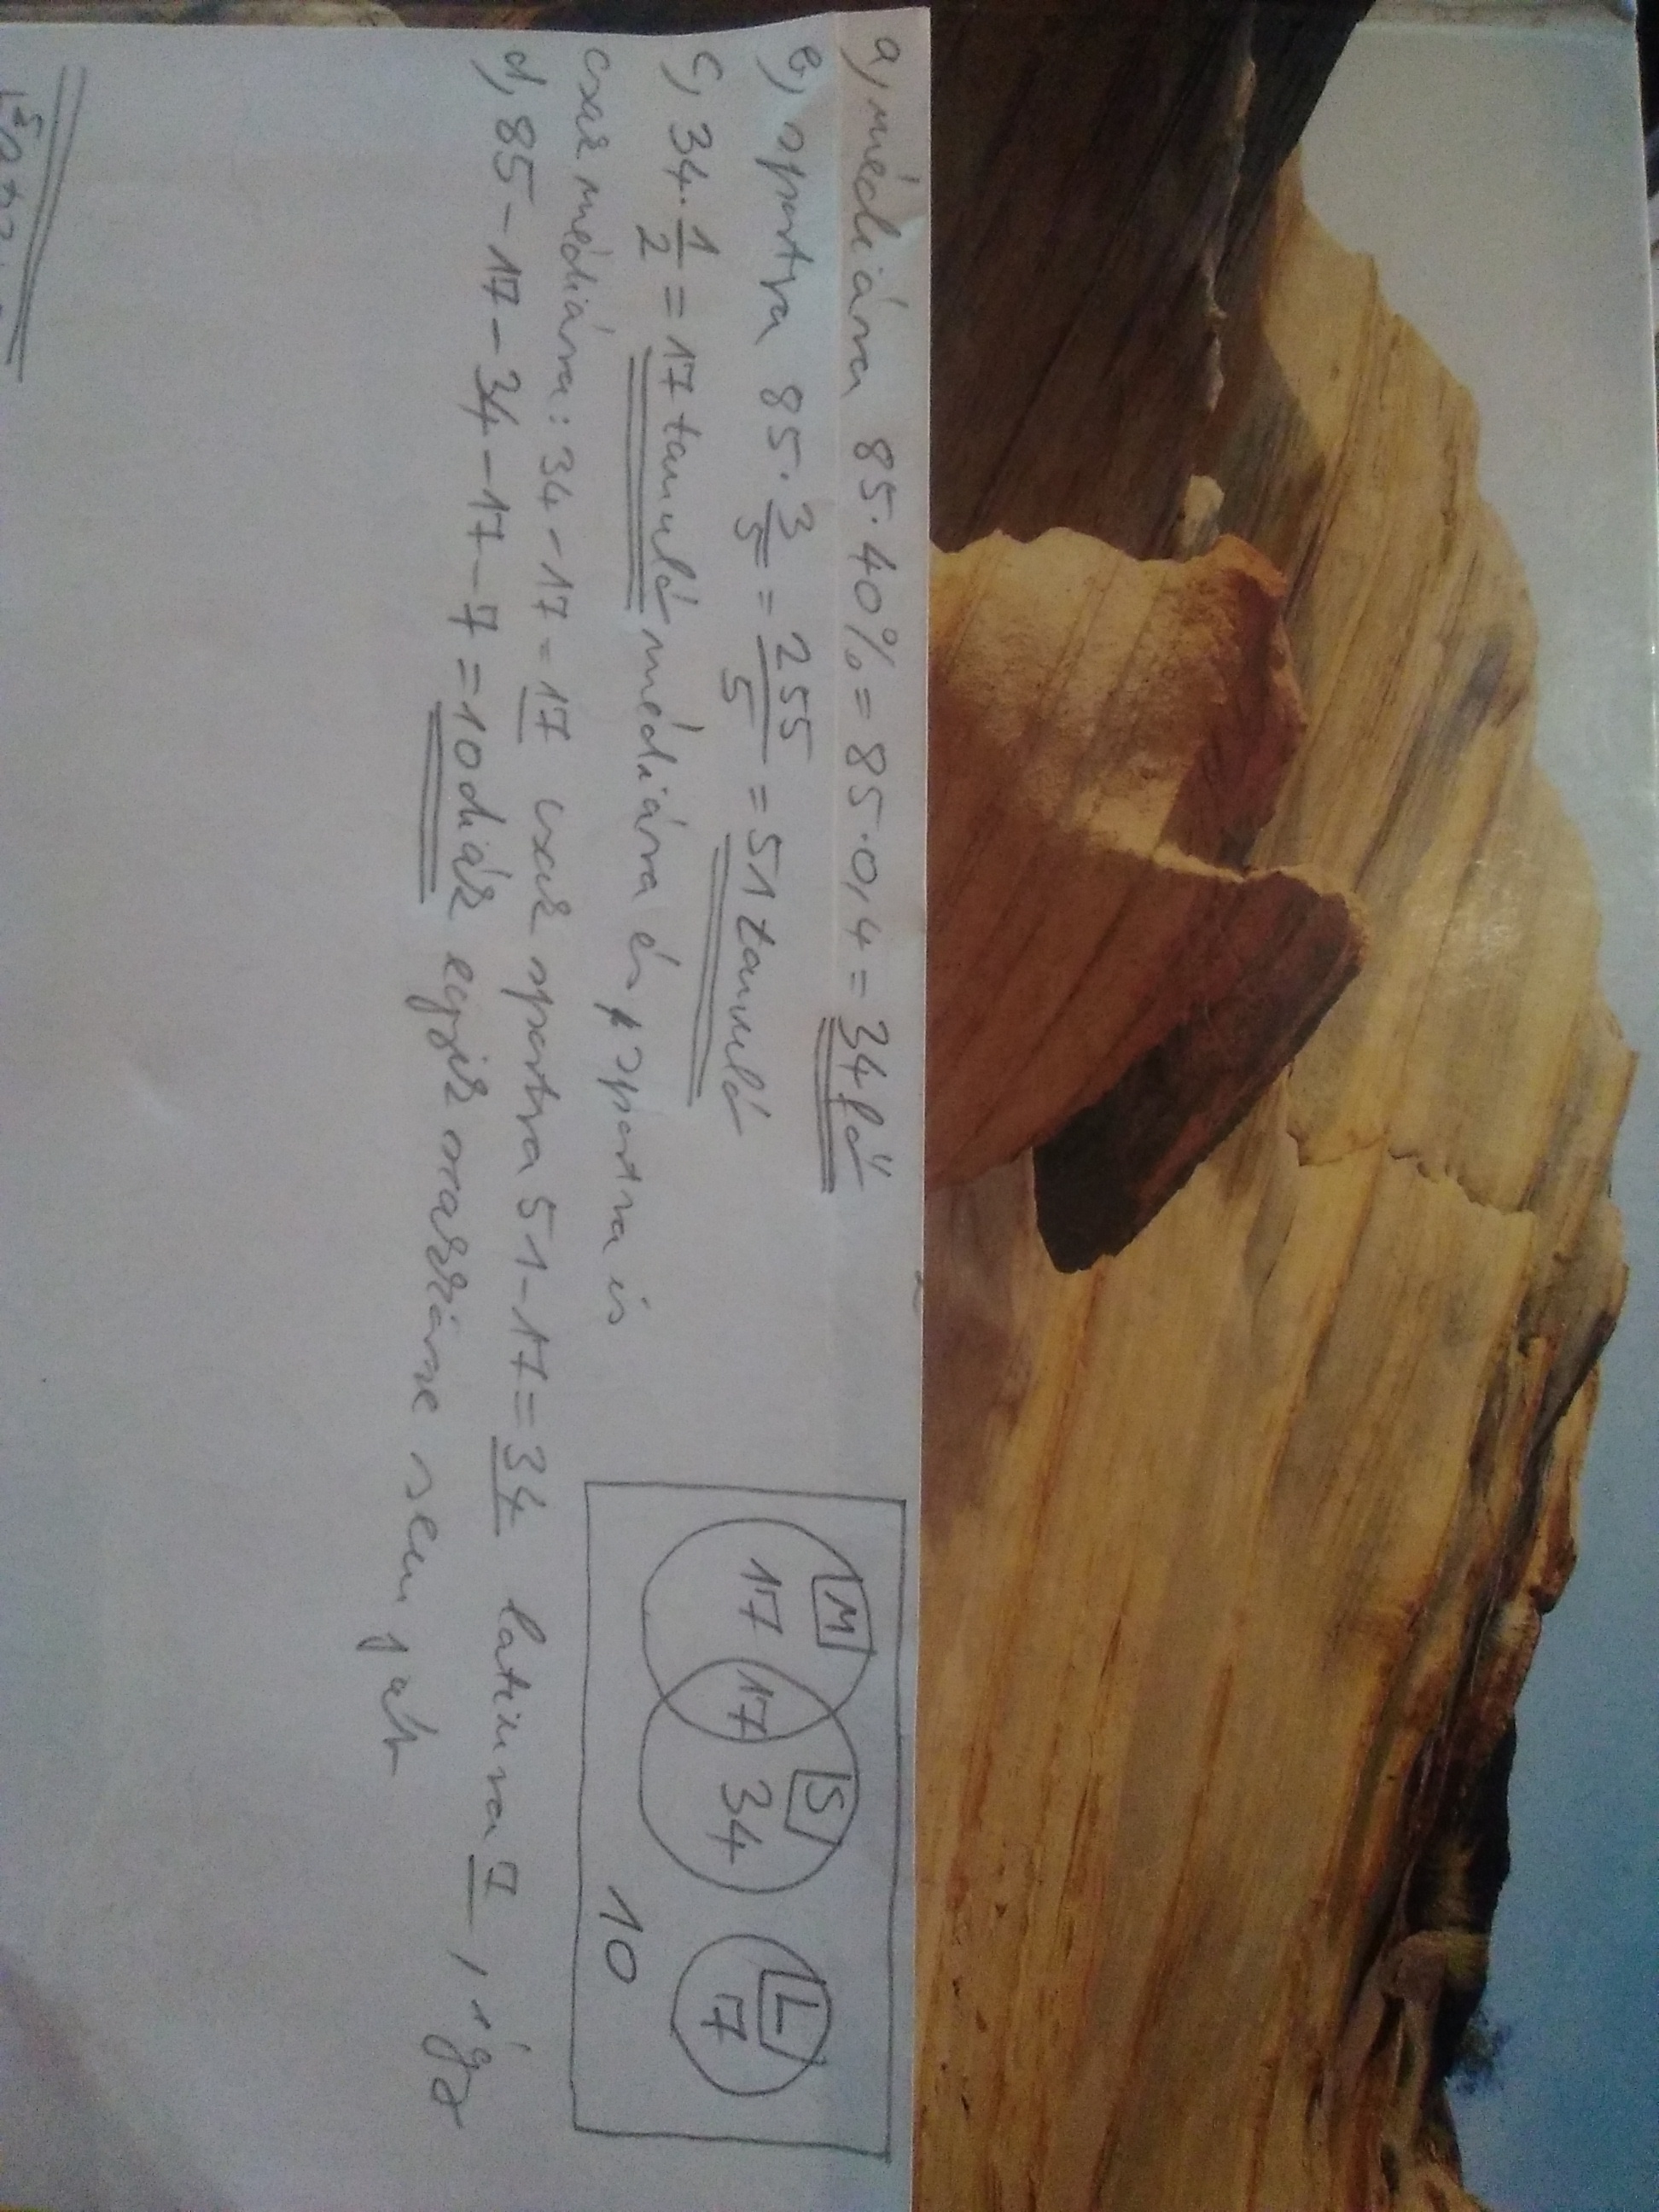 a, médiára 85·40% = 85·0,4 = 34 fő
b, sportra 85·3/5 = 255/5 = 51 tanuló
c, 34·1/2 = 17 tanuló médiára és sportra is
csak médiára: 34-17=17 csak sportra 51-17=34 latinra 7, így
d, 85-17-34-17-7=10 diák egyik szakkörre sem járt
M S L
17 17 34 7
10